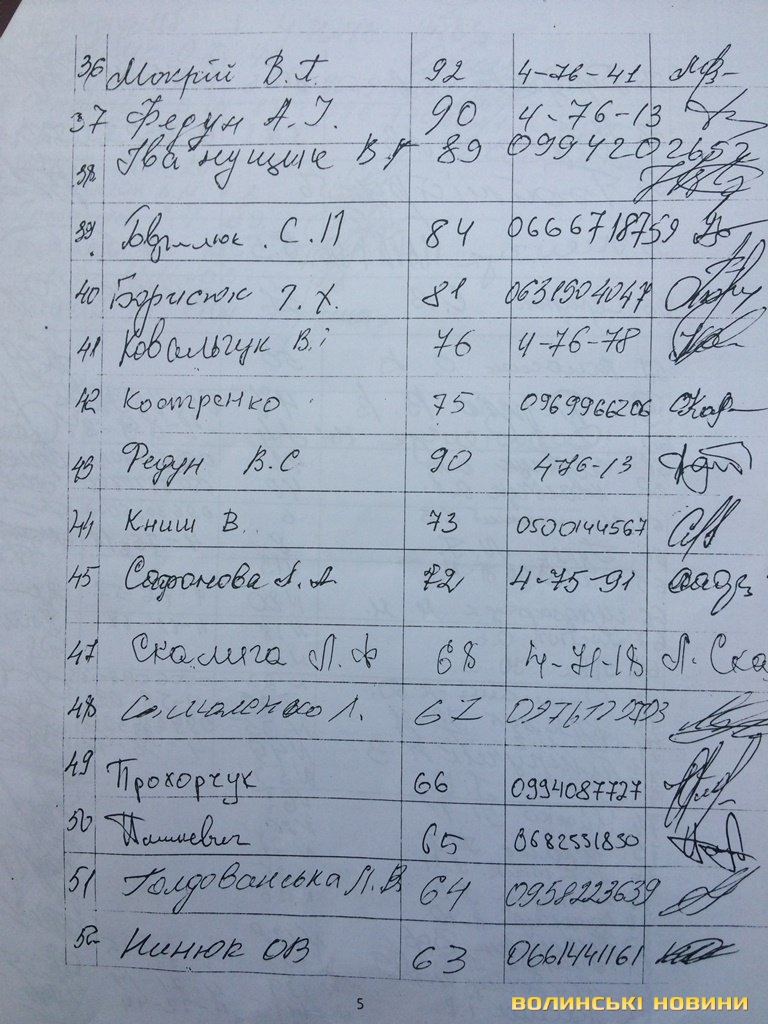 36 Мокрій В.П. 92 4-76-41
37 Федун А.І. 90 4-76-13
38 Іванущик В 89 0994202652
39 С.П 84 0666718759
40 Борисюк Г.Х. 81 0631904047
41 Ковальчук В. 76 4-76-78
42 Костренко 75 0969966206
43 Федун В.С 90 476-13
44 Книш В. 73 0500144567
45 Сафонова Л.А 72 4-75-91
47 Скалига Л.Ф 68 4-71-18 Л. Ска
48 Л. 67
49 Прохорчук 66 0994087727
50 Пашкевич 65 0682551850
51 Голдованська Л.В 64 0958223639
52 Нинюк ОВ 63 0661441161
5
ВОЛИНСЬКІ НОВИНИ